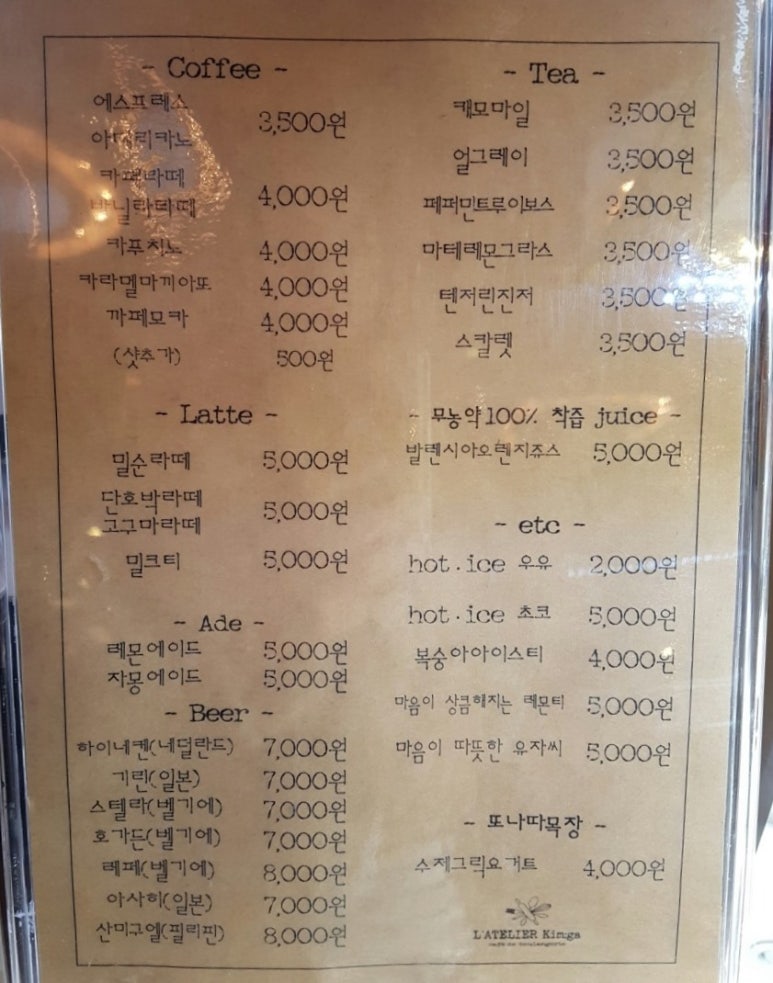 - Coffee -
에스프레소
아메리카노
3,500원
카페라떼
바닐라라떼
4,000원
카푸치노 4,000원
카라멜마끼아또 4,000원
까페모카 4,000원
(샷추가) 500원
- Latte -
밀순라떼 5,000원
단호박라떼
고구마라떼
5,000원
밀크티 5,000원
- Ade -
레몬에이드 5,000원
자몽에이드 5,000원
- Beer -
하이네켄(네덜란드) 7,000원
기린(일본) 7,000원
스텔라(벨기에) 7,000원
호가든(벨기에) 7,000원
레페(벨기에) 8,000원
아사히(일본) 7,000원
산미구엘(필리핀) 8,000원
- Tea -
캐모마일 3,500원
얼그레이 3,500원
페퍼민트루이보스 3,500원
마테레몬그라스 3,500원
텐저린진저 3,500원
스칼렛 3,500원
- 무농약100% 착즙 juice -
발렌시아오렌지쥬스 5,000원
- etc -
hot·ice 우유 2,000원
hot·ice 초코 5,000원
복숭아아이스티 4,000원
마음이 상큼해지는 레몬티 5,000원
마음이 따뜻한 유자씨 5,000원
- 또나따목장 -
수제그릭요거트 4,000원
L'ATELIER Kim:ga